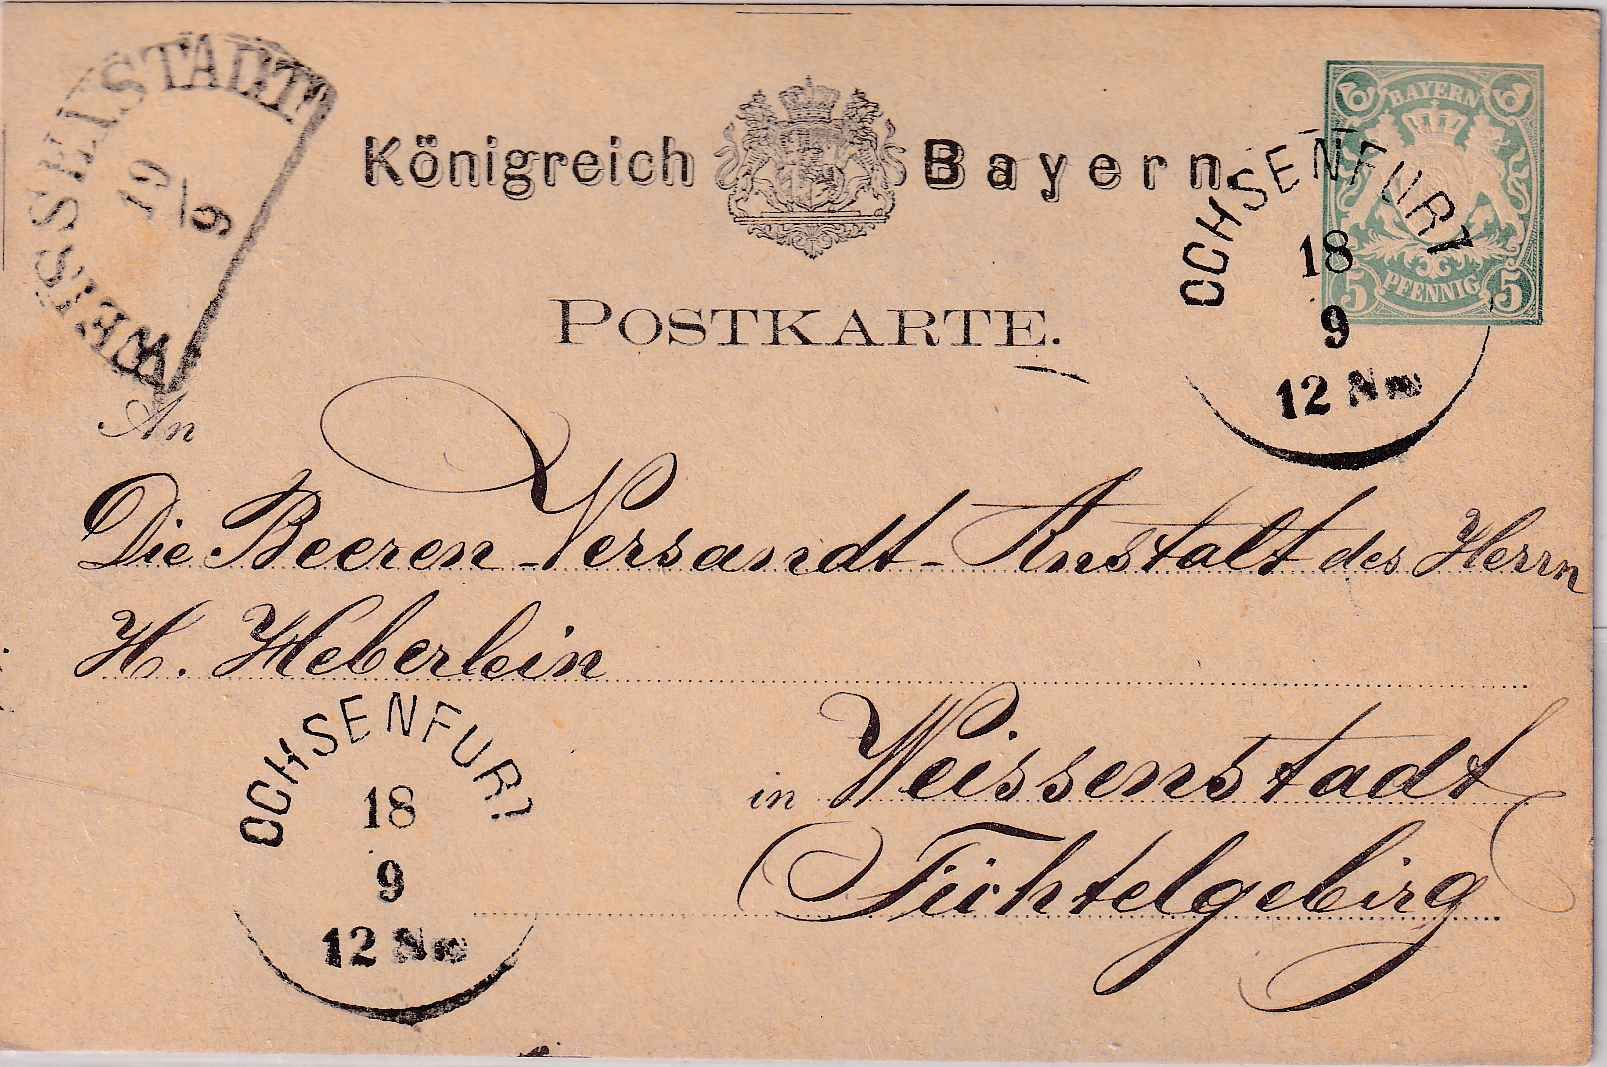 WEISSENSTADT
19/9
Königreich Bayern.
BAYERN
5 PFENNIG 5
OCHSENFURT
18
9
12 Nm
POSTKARTE.
An
Die Beeren-Versandt-Anstalt des Herrn
H. Heberlein
in Weissenstadt
Fichtelgebirg
OCHSENFURT
18
9
12 Nm